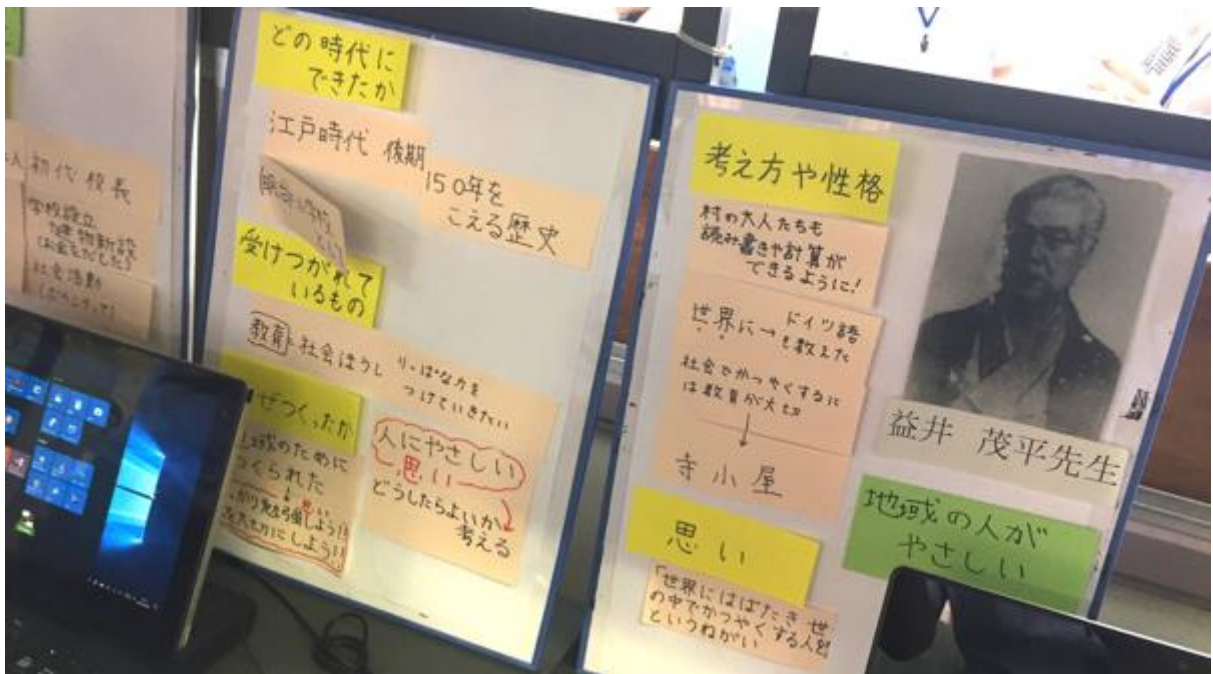 初代校長
学校設立
建物新設
(お金をだした)
社会活動
(ボランティア)
どの時代に
できたか
江戸時代 後期
150年を
こえる歴史
受けつがれて
いるもの
教育 社会ほうし
りっぱな力を
つけていきたい
ぜつくったか
域のために
つくられた
思い
大切にしよう!!
人にやさしい
思い
どうしたらよいか
考える
考え方や性格
村の大人たちも
読み書きや計算が
できるように!
世界に→ ドイツ語
も教えた
社会でかつやくするに
は教育が大切
↓
寺小屋
思い
「世界にはばたき 世
の中でかつやくする人を
というねがい
益井 茂平先生
地域の人が
やさしい